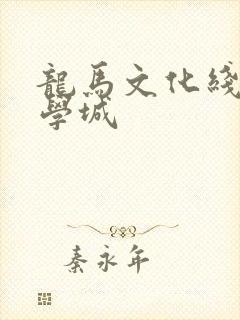 龍馬文化綫
學城
秦永年